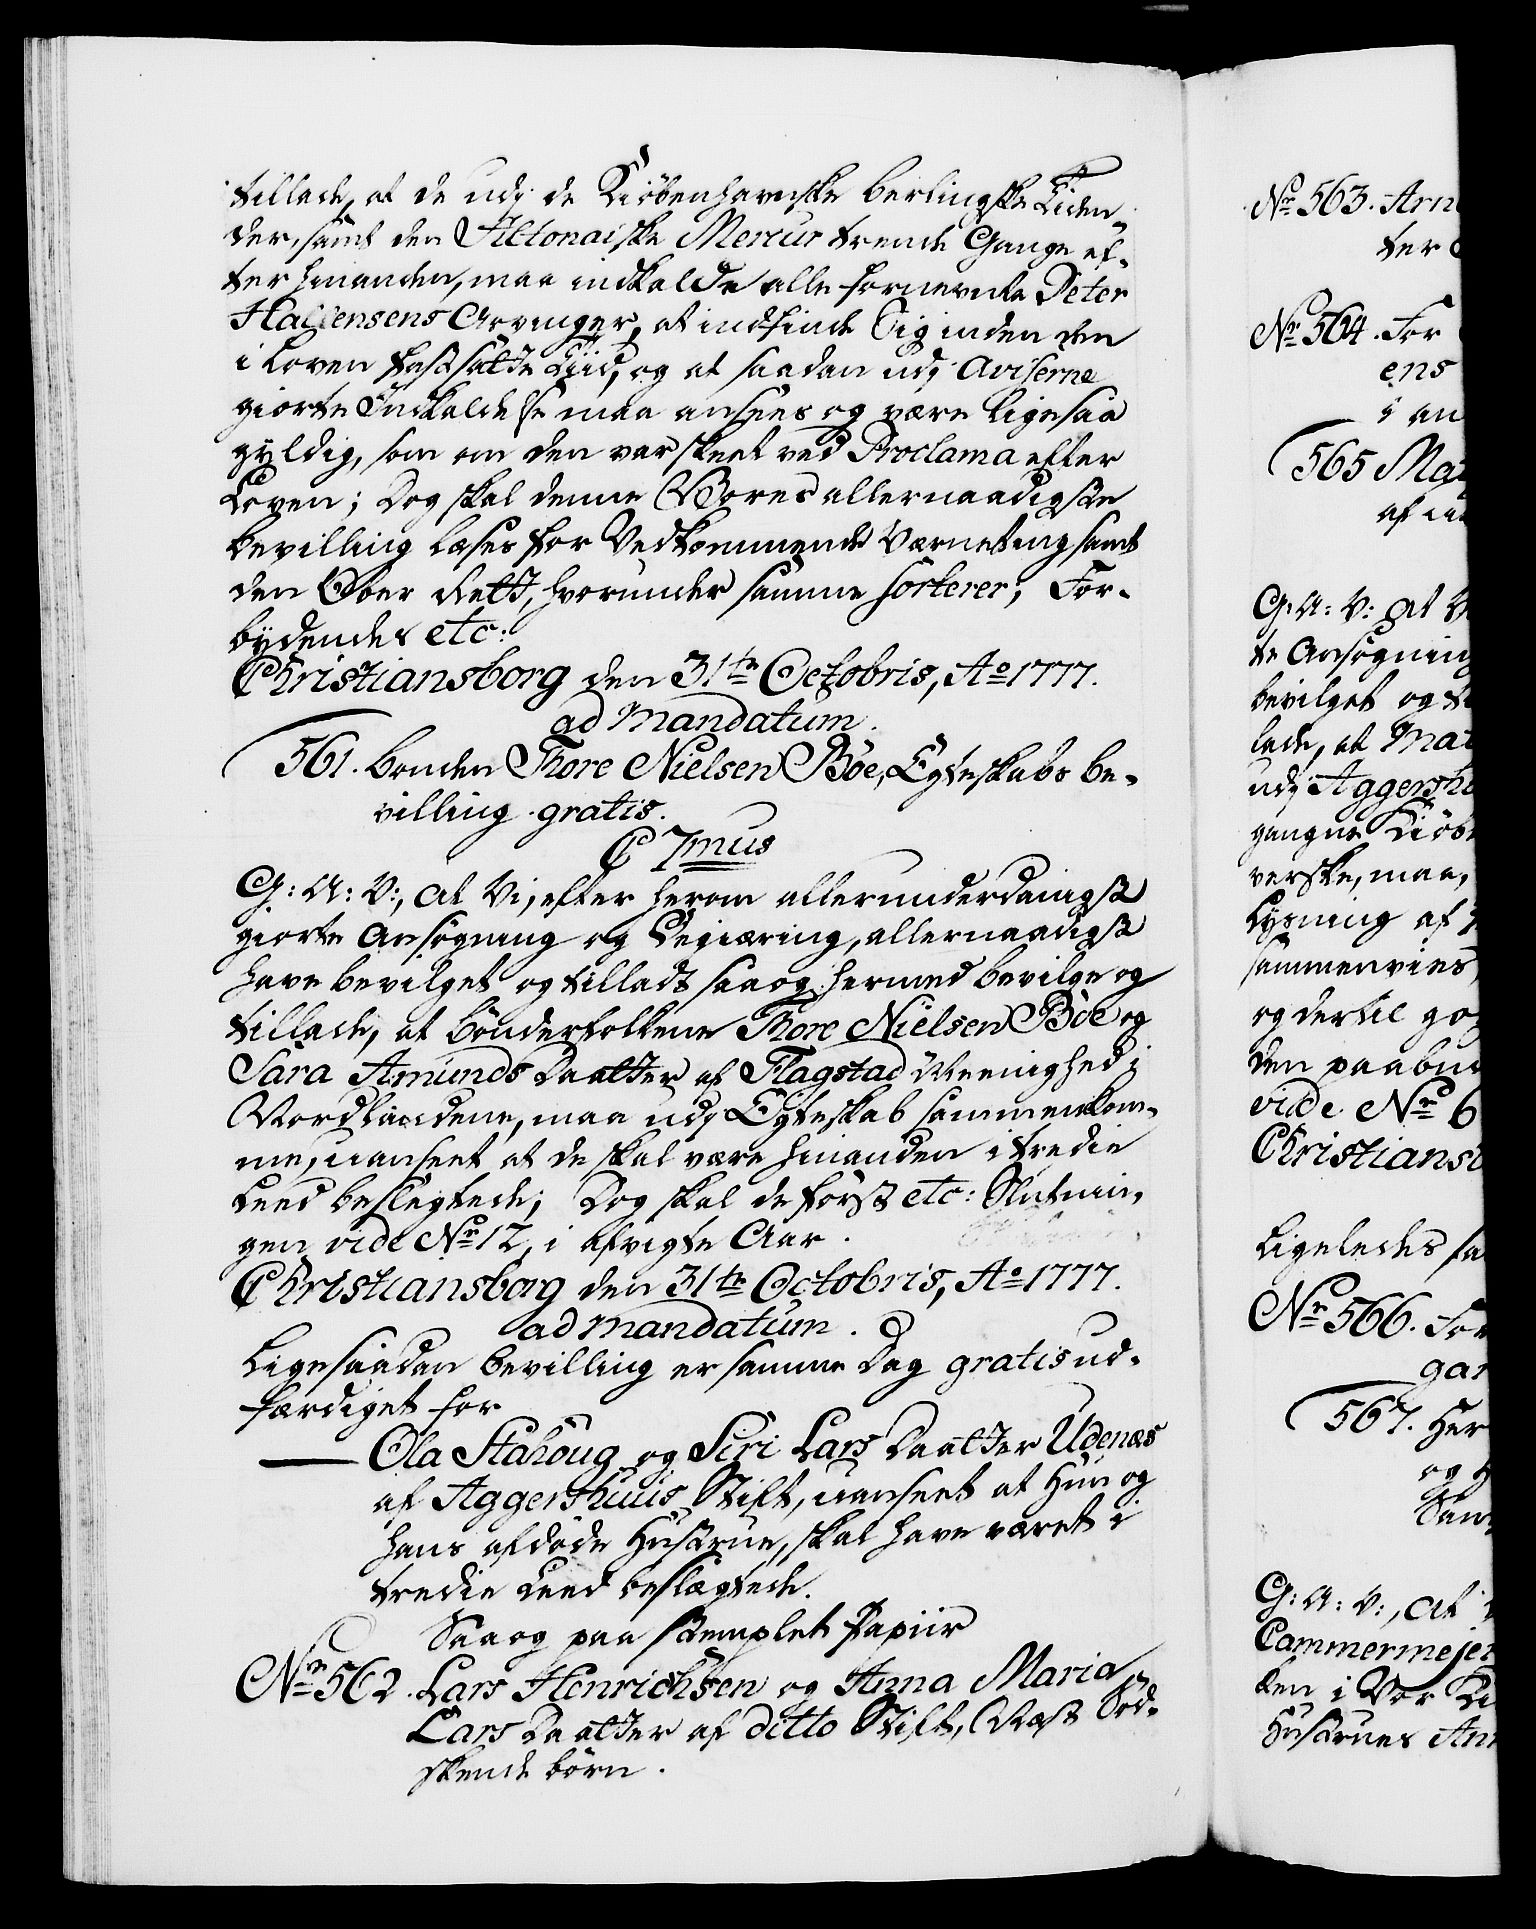 tillade, at de udj de Kiöbenhavnske berlingske Tiden-
der, samt den Altonaiske Mercur trende Gange ef-
ter hinanden, maa indkalde alle fornevnte Peter
Hallensens Arvinger, at indfinde Sig inden den
i Loven fastsatte Tiid, og at saadan udj Aviserne
giorte Indkaldelse maa ansees og være ligesaa
gyldig, som om den var skeet ved Proclama efter
Loven; Dog skal denne Vores allernaadigste
bevilling læses for Vedkommende Værneting samt
den Ober Rett, hvorunder samme sorterer; For-
bydendes etc:
Christiansborg den 31te Octobris, Ao 1777.
ad mandatum.
561. bonden Thore Nielsen Böe, Egteskabs be-
villing gratis.
C 7mus
G: A: V:, At Vi, efter herom allerunderdanigst
giorte Ansögning og begiæring, allernaadigst
have bevilget og tilladt saa og hermed bevilge og
tillade, at bönderfolkene Thore Nielsen Böe og
Sara Amunds Daatter af Flagstad Meenighed i
Nordlandene, maa udj Egteskab sammenkom-
me, uanseet at de skal være hinanden i tredie
Leed beslegtede; Dog skal de först etc: Slutnin-
gen vide No 12, i afvigte Aar.
Christiansborg den 31te Octobris, Ao 1777.
ad mandatum.
Ligesaadan bevilling er samme Dag gratis ud-
færdiget for
Ola Stahoug og Siri Lars Daatter Udenæs
af Aggershuus Stift, uanseet at Hun og
hans afdöde Hustrue, skal have været i
tredie Leed beslægtede.
Saa og paa stemplet Papiir
No 562. Lars Henrichsen og Anna Maria
Lars Daatter af ditto Stift, Næst Söd-
skende börn.
No 563. Arn
ter
No 564. For
ens
i an
565 Mat
af
G: A: V: At V
te Ansögning
bevilget og ti
lade, at Mat
udj Aggersh
gangne Kiöb
verske, maa,
Lysning af
sammenvies
og dertil go
den paabu
vide No 6
Christiansb
Ligeledes sa
No 566. For
gar
567. Her
og H
Sam
G: A: V:, At
Cammermejer
ken i Vor Ki
Hustrues Ann